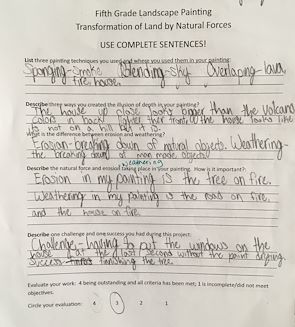 Fifth Grade Landscape Painting
Transformation of Land by Natural Forces
USE COMPLETE SENTENCES!
List three painting techniques you used and where you used them in your painting:
Sponging-smoke Blending-sky Overlaping-lava,
fire, house,
Describe three ways you created the illusion of depth in your painting?
The house up close looks bigger than the volcano
colors in back lighter than front the house looks like
its not on a hill but it is.
What is the difference between erosion and weathering?
Erosion-breaking down of natural objects. Weathering-
the breaking down of man made objects.
weathering
Describe the natural force and erosion taking place in your painting. How is it important?:
Erosion in my painting is the tree on fire.
Weathering in my painting is the road on fire,
and the house on fire.
Describe one challenge and one success you had during this project:
Challenge-having to put the windows on the
house at the last second without the paint drying
success- finishing the tree
Evaluate your work: 4 being outstanding and all criteria has been met; 1 is incomplete/did not meet
objectives.
Circle your evaluation: 4 3 2 1